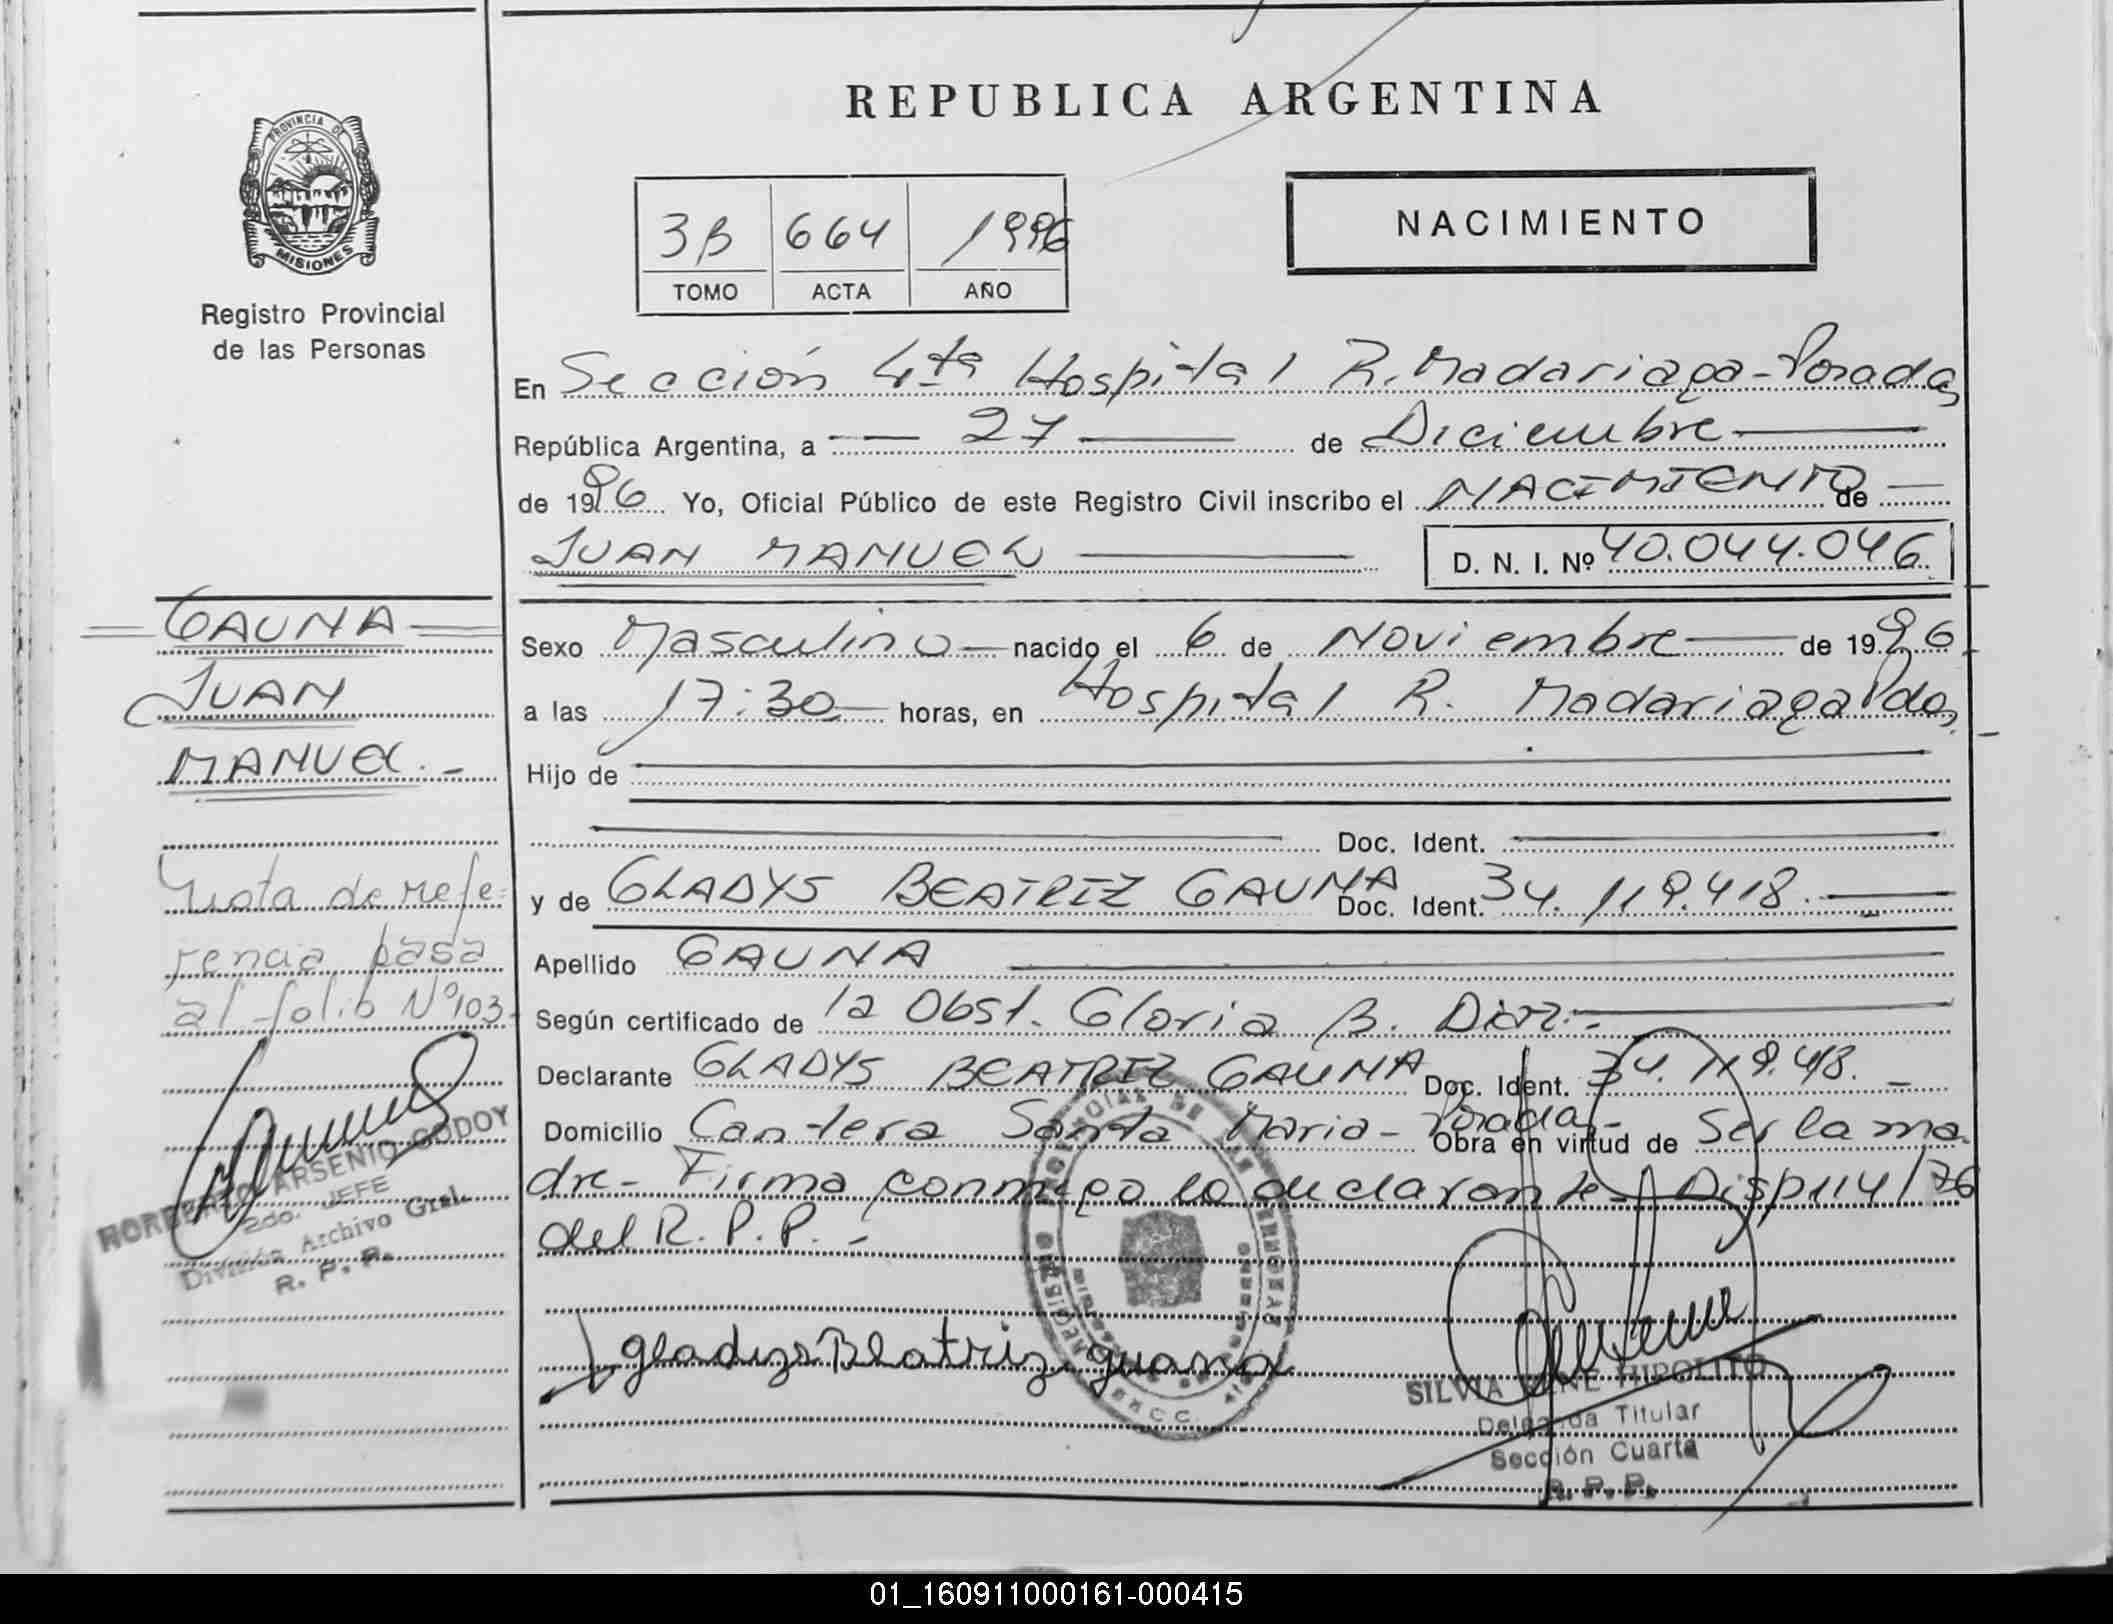 REPUBLICA ARGENTINA
PROVINCIA DE
MISIONES
Registro Provincial
de las Personas
3B 664 1996
TOMO ACTA AÑO
NACIMIENTO
En Sección 4ta Hospital R. Madariaga - Posadas
República Argentina, a 27 de Diciembre
de 1996 Yo, Oficial Público de este Registro Civil inscribo el NACIMIENTO de
JUAN MANUEL D. N. I. Nº 40.044.046
GAUNA
JUAN
MANUEL.-
Sexo Masculino nacido el 6 de Noviembre de 1996
a las 17:30 horas, en Hospital R. Madariaga Pdas.
Hijo de
Doc. Ident.
y de GLADYS BEATRIZ GAUNA Doc. Ident. 34.119.418.
Apellido GAUNA
Según certificado de la Obst. Gloria B. Diaz.-
Declarante GLADYS BEATRIZ GAUNA Doc. Ident. 34.119.418.-
Domicilio Cantera Santa Maria - Posadas - Obra en virtud de Ser la ma
dre - Firma conmigo la declarante - Disp 114/76
del R. P. P. -
Nota de refe-
rencia pasa
al folio Nº 103-
NORBERTO ARSENIO GODOY
2do. JEFE
División Archivo Gral.
R. P. P.
gladys Beatriz guana
SILVIA IRENE HIPOLITO
Delegada Titular
Sección Cuarta
R. P. P.
01_160911000161-000415